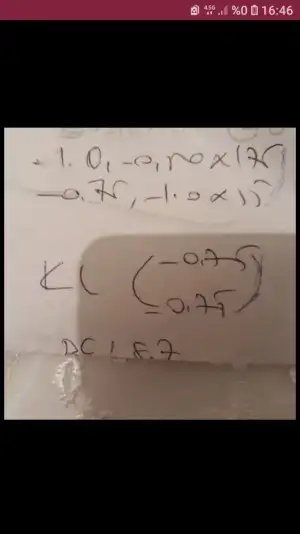 %0 16:46
-1.0, -0,50 x 175
-0.75, -1.0 x 15
KC (-0.75
-0.75)
DC 1 8.7